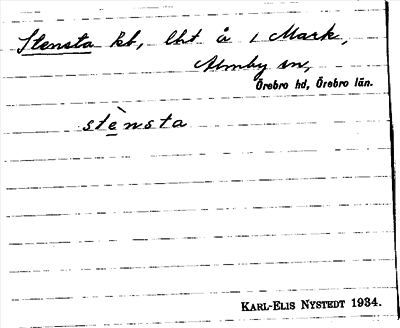 Stensta kb, lht å 1 Mark,
Almby sn,
Örebro hd, Örebro län.
stènsta
KARL-ELIS NYSTEDT 1934.